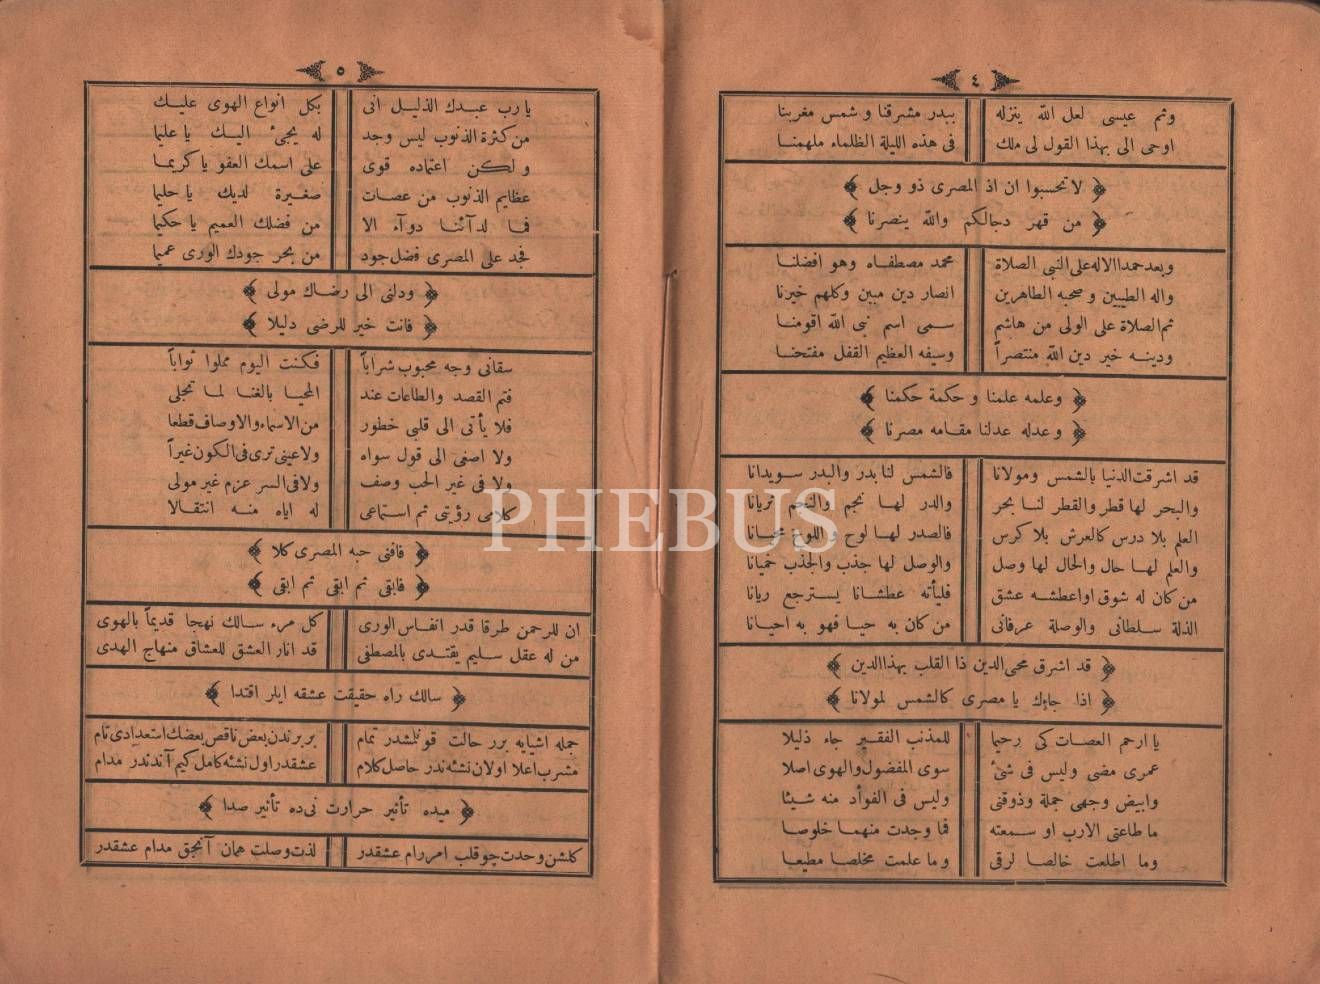 ٤
وثم عيسى لعل الله ينزله ببدر مشرقنا و شمس مغربنا
اوحى الى بهذا القول لى ملك فى هذه الليلة الظلماء ملهمنا
لا تحسبوا ان اذ المصرى ذو وجل
من قهر دجالكم والله ينصرنا
وبعد حمدا الاله على النبى الصلاة محمد مصطفاه وهو افضلنا
واله الطيبين و صحبه الطاهرين انصار دين مبين وكلهم خيرنا
ثم الصلاة على الولى من هاشم سمى اسم نبى الله اقومنا
ودينه خير دين الله منتصراً وسيفه العظيم القفل مفتحنا
وعلمه علمنا و حكمة حكمنا
وعدله عدلنا مقامه مصرنا
قد اشرقت الدنيا بالشمس ومولانا فالشمس لنا بدر والبدر سويدانا
والبحر لها قطر والقطر لنا بحر والدر لها نجم والنجم ثريانا
العلم بلا درس كالعرش بلا كرس فالصدر لها لوح و اللوح
والعلم لها حال والحال لها وصل والوصل لها جذب والجذب حميانا
من كان له شوق اواعطشه عشق فليأته عطشانا يسترجع ريانا
الذلة سلطانى والوصلة عرفانى من كان به حيا فهو به احيانا
قد اشرق محى الدين ذا القلب بهذا الدين
اذا جاءك يا مصرى كالشمس لمولانا
يا ارحم العصات كى رحيما للمذنب الفقير جاء ذليلا
عمرى مضى وليس فى شئ سوى المفضول والهوى اصلا
وابيض وجهى جملة وذوقنى وليس فى الفوأد منه شيئا
ما طاعتى الارب او سمعته فما وجدت منهما خلوصا
وما اطلعت خالصا لرقى وما علمت مخلصا مطيعا
٥
يا رب عبدك الذليل اتى بكل انواع الهوى عليك
من كثرة الذنوب ليس وجد له يجئ اليك يا عليما
ولكن اعتماده قوى على اسمك العفو يا كريما
عظايم الذنوب من عصات صغيرة لديك يا حليما
فما لدآئنا دوآء الا من فضلك العميم يا حكيما
فجد على المصرى فضل جود من بحر جودك الورى عميما
ودلنى الى رضاك مولى
فانت خير للرضى دليلا
سقانى وجه محبوب شراباً فكنت اليوم مملوا ثواباً
فتم القصد والطاعات عند المحيا بالغنا لما تجلى
فلا يأتى الى قلبى خطور من الاسماء والاوصاف قطعا
ولا اصغى الى قول سواه ولا عينى ترى فى الكون غيراً
ولا فى غير الحب وصف ولا فى السر عزم غير مولى
كلامى رؤيتى ثم استماعى له اياه منه انتقالا
فافنى حبه المصرى كلا
فابقى ثم ابقى ثم ابقى
ان للرحمن طرقا قدر انفاس الورى كل مرء سالك نهجا قديماً بالهوى
من له عقل سليم يقتدى بالمصطفى قد انار العشق للعشاق منهاج الهدى
سالك راه حقيقت عشقه ايلر اقتدا
جمله اشيايه برر حالت قونلشدر تمام بر برندن بعض ناقص بعضك استعدادى تام
مشرب اعلا اولان نشئه ندر حاصل كلام عشقدر اول نشئه كامل كيم آندندر مدام
ميده تأثير حرارت نى ده تأثير صدا
كلشن وحدت چو قلب امر رام عشقدر لذت وصلت همان آنجق مدام عشقدر
PHEBUS